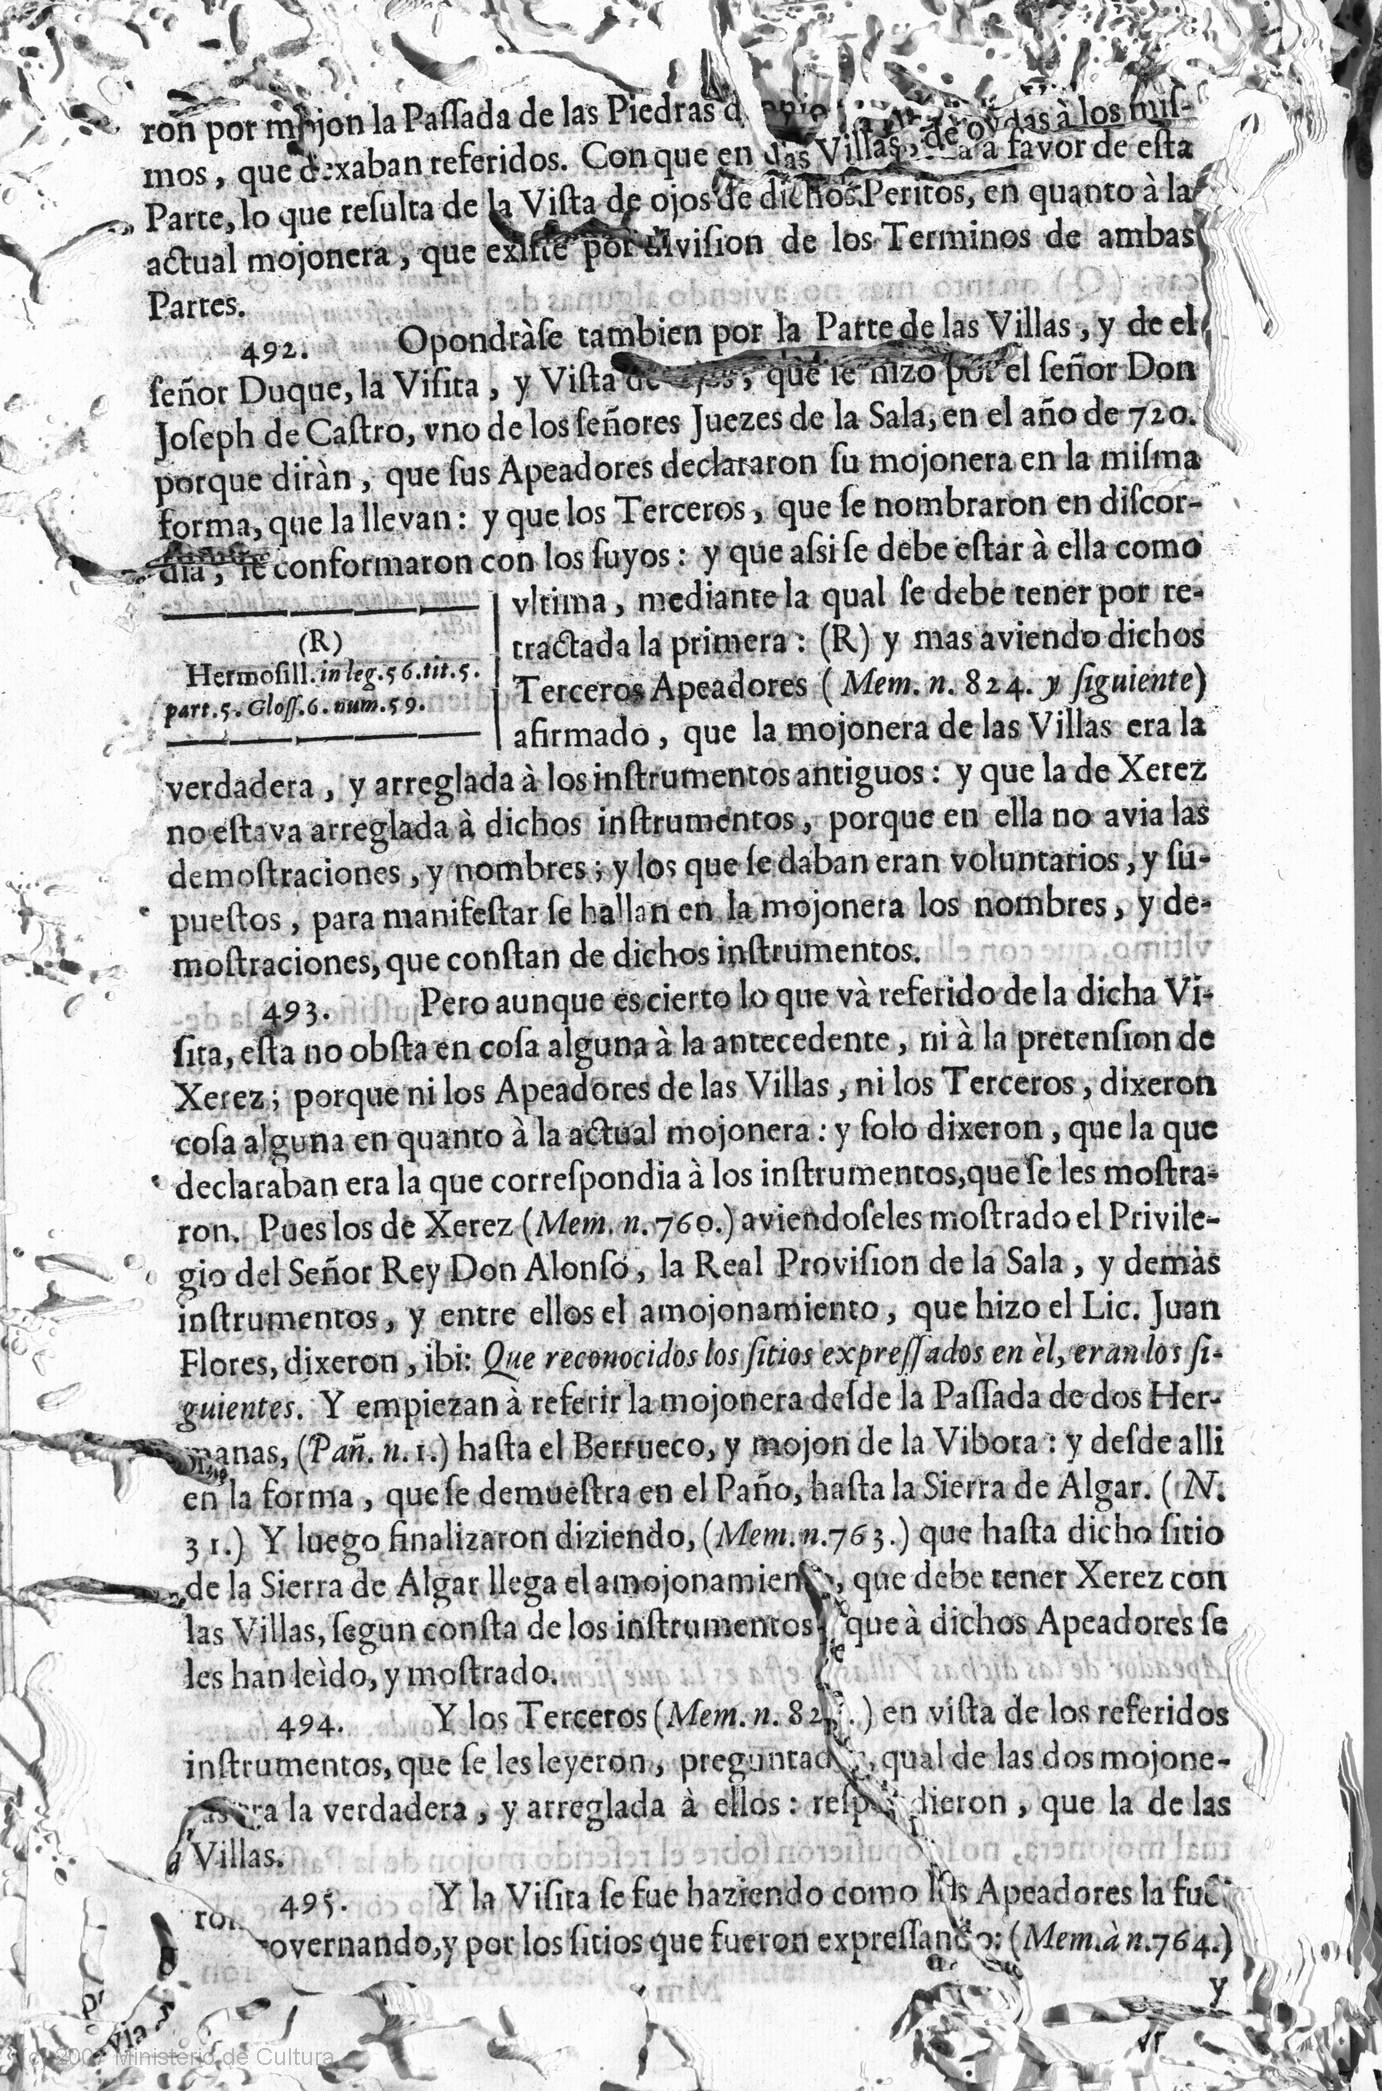 ron por mojon la Paſſada de las Piedras
das Villas, de oydas à los miſ-
mos, que dexaban referidos. Con que en a favor de eſta
Parte, lo que reſulta de la Viſta de ojos de dichos Peritos, en quanto à la
actual mojonera, que exiſte por diviſion de los Terminos de ambas
Partes.
492. Opondràſe tambien por la Parte de las Villas, y de el
ſeñor Duque, la Viſita, y Viſta de ojos, que ſe hizo por el ſeñor Don
Joſeph de Caſtro, vno de los ſeñores Juezes de la Sala, en el año de 720.
porque diràn, que ſus Apeadores declararon ſu mojonera en la miſma
forma, que la llevan: y que los Terceros, que ſe nombraron en diſcor-
dia, ſe conformaron con los ſuyos: y que aſsi ſe debe eſtar à ella como
vltima, mediante la qual ſe debe tener por re-
tractada la primera: (R) y mas aviendo dichos
Terceros Apeadores (Mem. n. 824. y ſiguiente)
afirmado, que la mojonera de las Villas era la
(R)
Hermoſill. in leg. 56. tit. 5.
part. 5. Gloſſ. 6. num. 59.
verdadera, y arreglada à los inſtrumentos antiguos: y que la de Xerez
no eſtava arreglada à dichos inſtrumentos, porque en ella no avia las
demoſtraciones, y nombres; y los que ſe daban eran voluntarios, y ſu-
pueſtos, para manifeſtar ſe hallan en la mojonera los nombres, y de-
moſtraciones, que conſtan de dichos inſtrumentos.
493. Pero aunque es cierto lo que và referido de la dicha Vi-
ſita, eſta no obſta en coſa alguna à la antecedente, ni à la pretenſion de
Xerez; porque ni los Apeadores de las Villas, ni los Terceros, dixeron
coſa alguna en quanto à la actual mojonera: y ſolo dixeron, que la que
declaraban era la que correſpondia à los inſtrumentos, que ſe les moſtra-
ron. Pues los de Xerez (Mem. n. 760.) aviendoſeles moſtrado el Privile-
gio del Señor Rey Don Alonſo, la Real Proviſion de la Sala, y demàs
inſtrumentos, y entre ellos el amojonamiento, que hizo el Lic. Juan
Flores, dixeron, ibi: Que reconocidos los ſitios expreſſados en èl, eran los ſi-
guientes. Y empiezan à referir la mojonera deſde la Paſſada de dos Her-
manas, (Pañ. n. 1.) haſta el Berrueco, y mojon de la Vibora: y deſde alli
en la forma, que ſe demueſtra en el Paño, haſta la Sierra de Algar. (N.
31.) Y luego finalizaron diziendo, (Mem. n. 763.) que haſta dicho ſitio
de la Sierra de Algar llega el amojonamiento, que debe tener Xerez con
las Villas, ſegun conſta de los inſtrumentos, que à dichos Apeadores ſe
les han leìdo, y moſtrado.
494. Y los Terceros (Mem. n. 82 .) en viſta de los referidos
inſtrumentos, que ſe les leyeron, preguntados, qual de las dos mojone-
ras era la verdadera, y arreglada à ellos: reſpondieron, que la de las
Villas.
495. Y la Viſita ſe fue haziendo como los Apeadores la fue-
ron governando, y por los ſitios que fueron expreſſando: (Mem. à n. 764.)
y
via
(c) 2007 Ministerio de Cultura